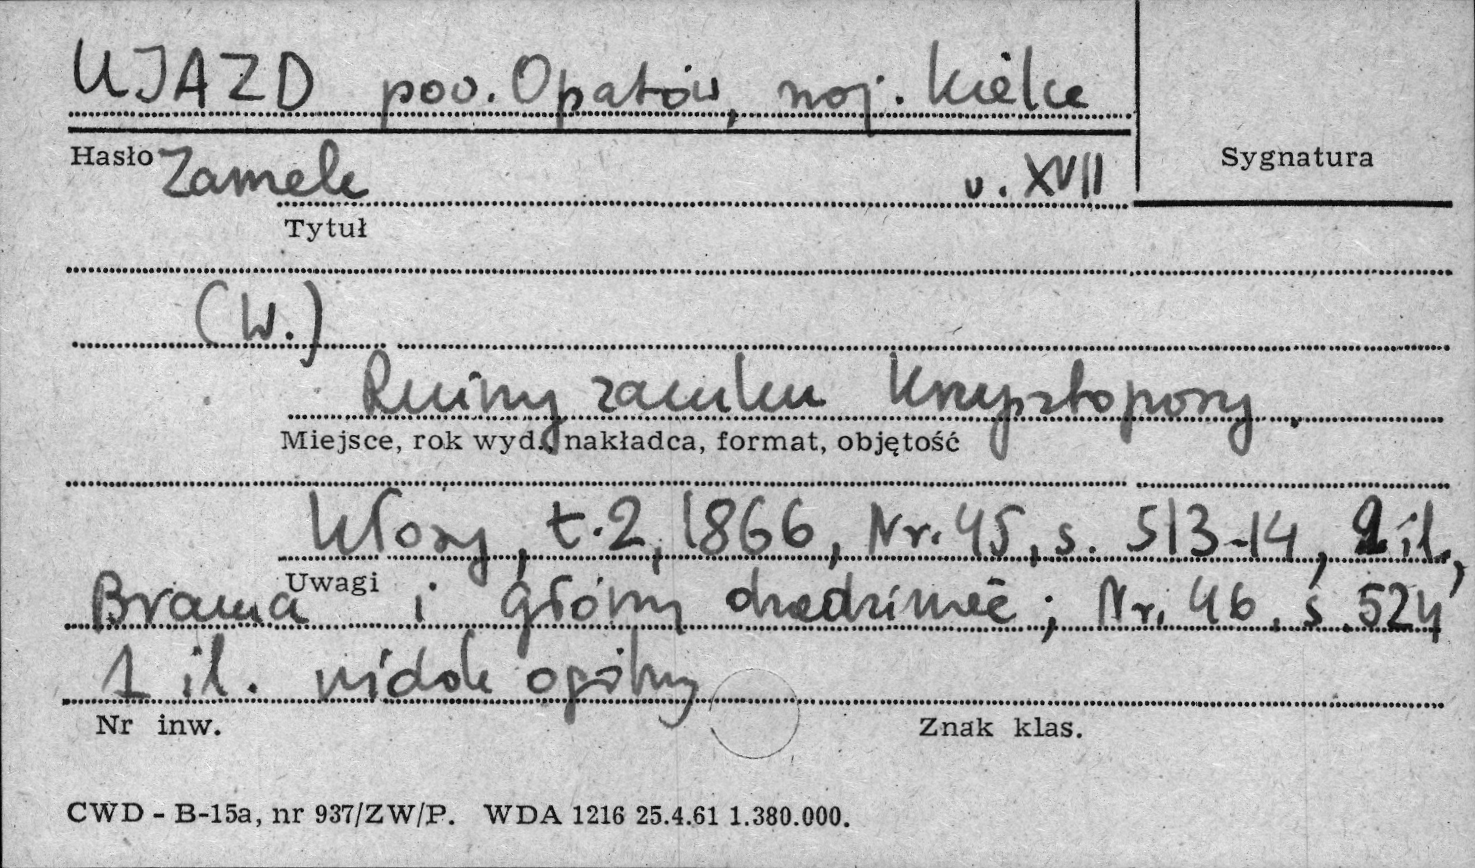 UJAZD pow. Opatów, woj. Kielce
Hasło Zamek w. XVII
Sygnatura
Tytuł
(W.)
Ruiny zamku Krzyżtopory.
Miejsce, rok wyd., nakładca, format, objętość
Kłosy, t. 2, 1866, Nr. 45, s. 513-14, 2 il.,
Uwagi
Brama i główny dziedziniec; Nr. 46. s. 524
1 il. widok ogólny
Nr inw.
Znak klas.
CWD - B-15a, nr 937/ZW/P. WDA 1216 25.4.61 1.380.000.